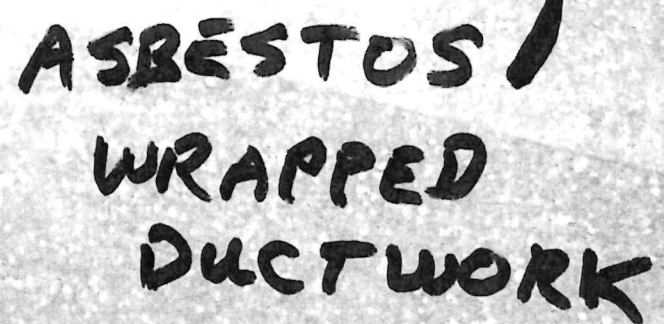 ASBESTOS/
WRAPPED
DUCTWORK